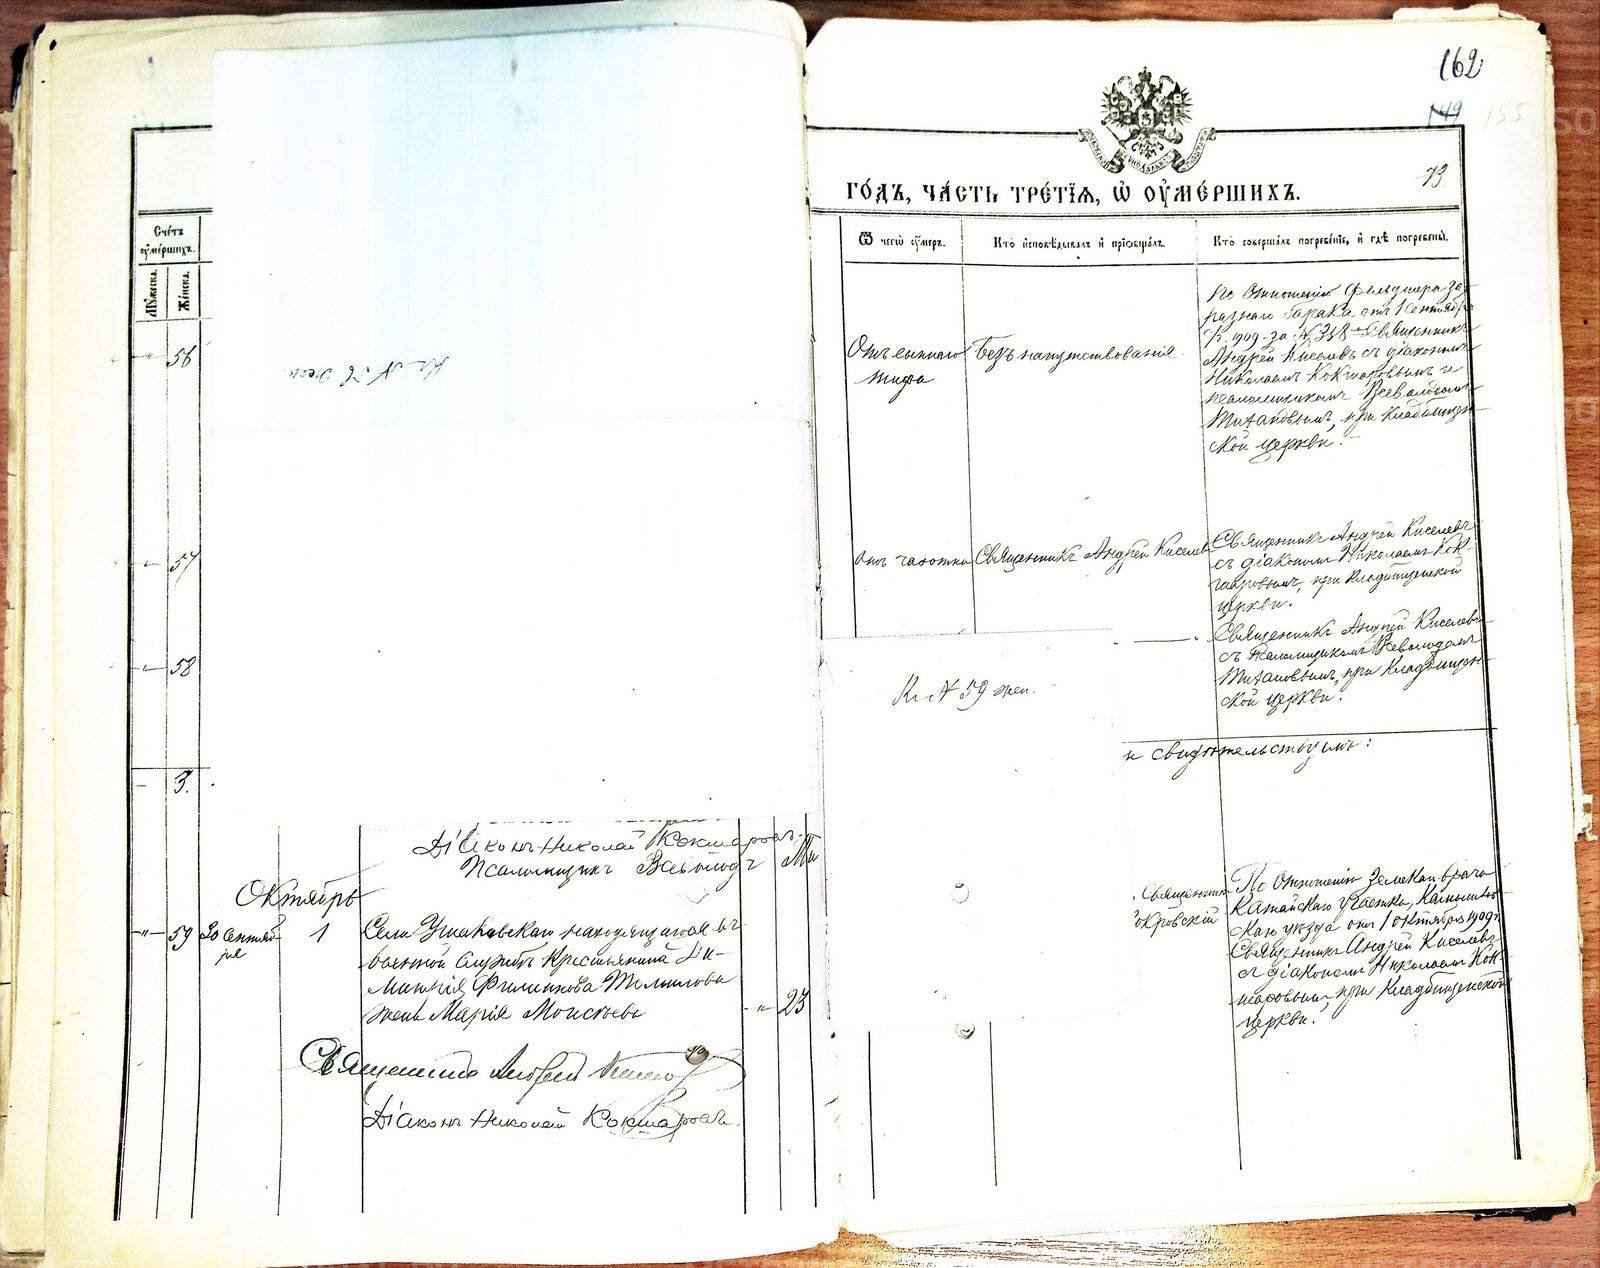 162
149 155
73.
ГО́ДЪ, ЧА́СТЬ ТРЕ́ТЇѦ, Ѡ҆ ОУ҆МЕ́РШИХЪ.
Счетъ
оумершихъ.
Мужеска.
Женска.
Ѿ чегѡ оумеръ.
Кто исповѣдывалъ и пріобщалъ.
Кто совершалъ погребеніе, и гдѣ погребены.
56
Къ № 56 жен.
Отъ сыпного
тифа
Безъ напутствованія.
По отношенію фельдшера за-
разнаго барака отъ 1 Сентября
1909 за № 318 Священникъ
Андрей Киселевъ съ діакономъ
Николаемъ Кокшаровымъ и
псаломщикомъ Всеволодомъ
Титановымъ, при Кладбищен-
ской церкви.
57
отъ чахотки
Священникъ Андрей Киселев
Священникъ Андрей Киселевъ
съ діакономъ Николаемъ Кок-
шаровымъ, при Кладбищенской
церкви.
58
Священникъ Андрей Киселевъ
съ псаломщикомъ Всеволодомъ
Титановымъ, при Кладбищен-
ской церкви.
Къ № 59 жен.
и свидѣтельствуемъ:
3.
Діаконъ Николай Кокшаровъ.
Псаломщикъ Всеволодъ Ти
Октябрь
59
30 Сентяб-
ря
1
Села Ушаковскаго находящагося въ
военной службѣ крестьянина Ди-
митрія Филиппова Томилова
жена Марія Моисѣева
23
Священник
окровскій
По отношенію Земскаго врача
Катайскаго участка, Камышлов-
скаго уѣзда отъ 1 октября 1909 г.
Священникъ Андрей Киселевъ
съ діакономъ Николаемъ Кок-
шаровымъ, при Кладбищенской
церкви.
Священникъ Андрей Киселев
Діаконъ Николай Кокшаровъ.